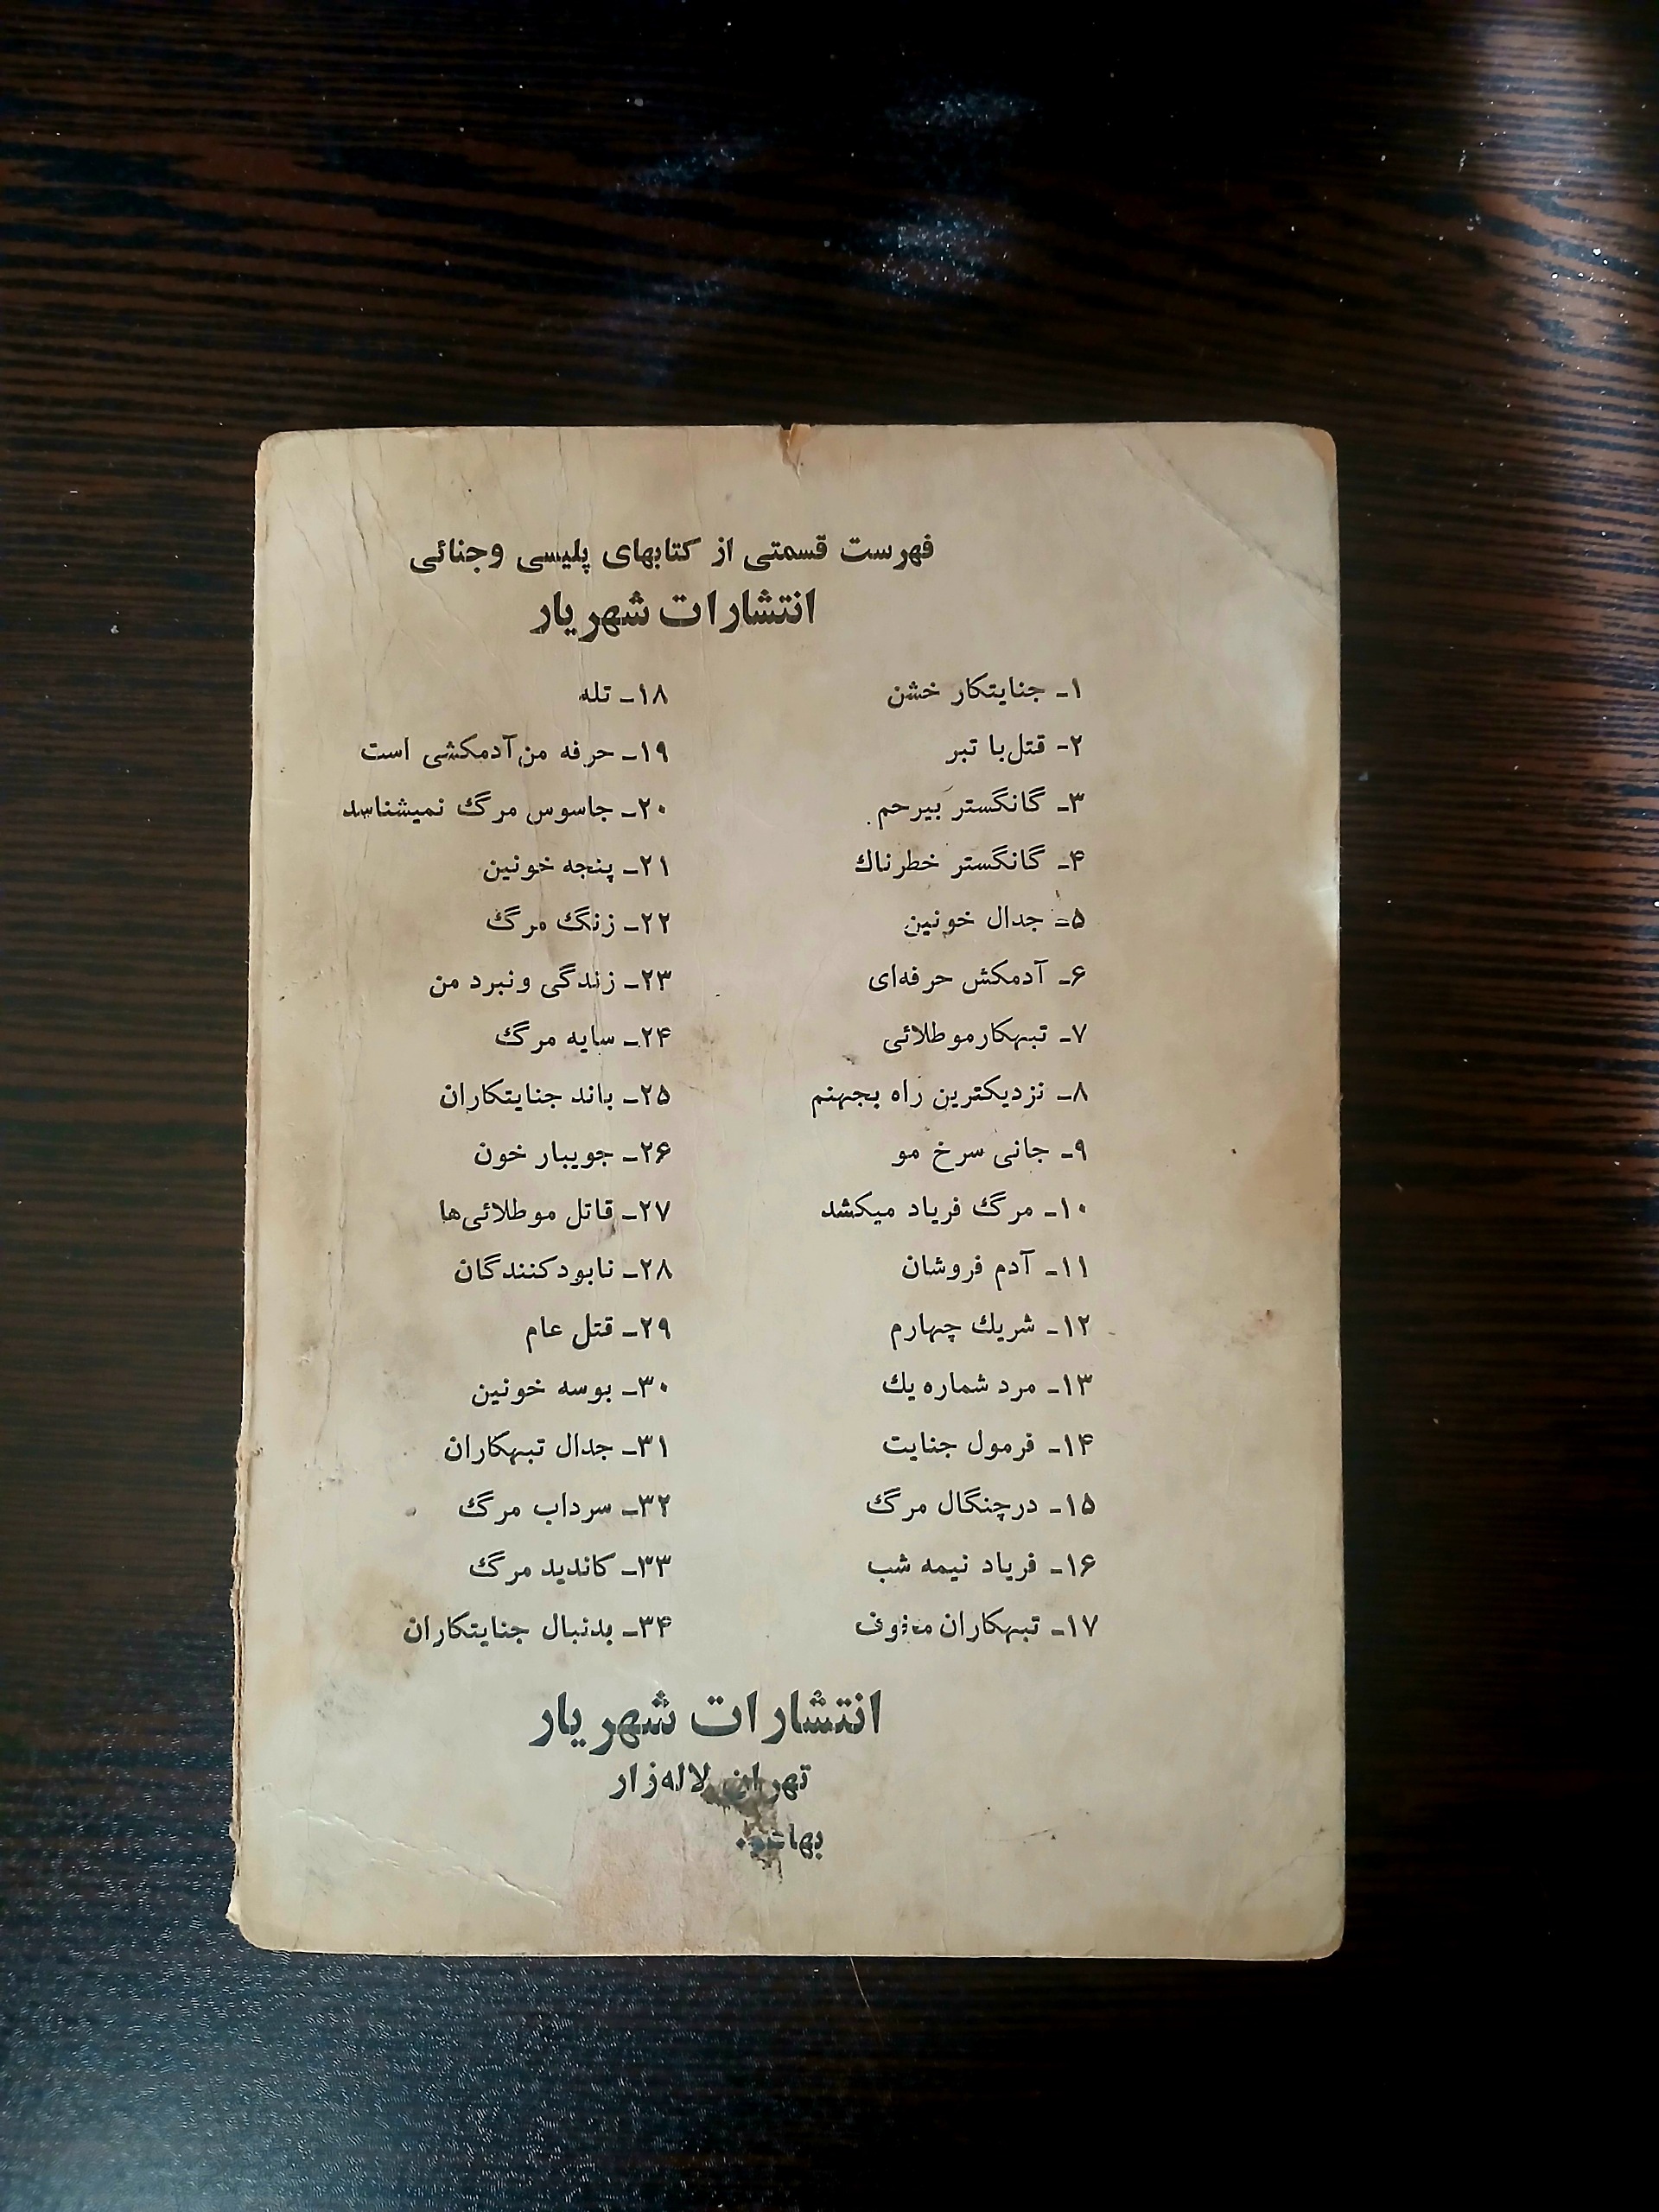 فهرست قسمتی از کتابهای پلیسی وجنائی
انتشارات شهریار
۱ـ جنایتکار خشن
۲- قتل با تبر
۳ـ گانگستر بیرحم
۴ـ گانگستر خطرناك
۵ـ جدال خونین
۶ـ آدمکش حرفه‌ای
۷ـ تبهکارموطلائی
۸ـ نزدیکترین راه بجهنم
۹ـ جانی سرخ مو
۱۰ـ مرگ فریاد میکشد
۱۱ـ آدم فروشان
۱۲ـ شریك چهارم
۱۳ـ مرد شماره یك
۱۴ـ فرمول جنایت
۱۵ـ درچنگال مرگ
۱۶ـ فریاد نیمه شب
۱۷ـ تبهکاران
۱۸ـ تله
۱۹ـ حرفه من آدمکشی است
۲۰ـ جاسوس مرگ نمیشناسد
۲۱ـ پنجه خونین
۲۲ـ زنگ مرگ
۲۳ـ زندگی ونبرد من
۲۴ـ سایه مرگ
۲۵ـ باند جنایتکاران
۲۶ـ جویبار خون
۲۷ـ قاتل موطلائی‌ها
۲۸ـ نابودکنندگان
۲۹ـ قتل عام
۳۰ـ بوسه خونین
۳۱ـ جدال تبهکاران
۳۲ـ سرداب مرگ
۳۳ـ کاندید مرگ
۳۴ـ بدنبال جنایتکاران
انتشارات شهریار
تهران لاله‌زار
بها